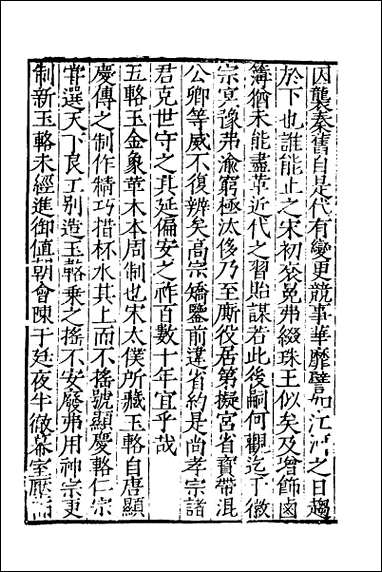 因襲秦舊自是代有變更競事華靡譬如江河之日趨
於下也誰能止之宋初袞冕弗綴珠玉似矣及增飾鹵
簿猶未能盡革近代之習貽謀若此後嗣何觀迄于徽
宗宣豫弗渝窮極汰侈乃至廝役居第擬宮省寶帶混
公卿等威不復辨矣高宗矯鑒前違省約是尚孝宗諸
君克世守之其延偏安之祚百數十年宜乎哉
五輅玉金象革木本周制也宋太僕所藏玉輅自唐顯
慶傳之制作精巧措杯水其上而不搖號顯慶輅仁宗
嘗選天下良工別造玉輅乘之搖不安廢弗用神宗更
制新玉輅未經進御值朝會陳于廷夜半徹幕室壓而